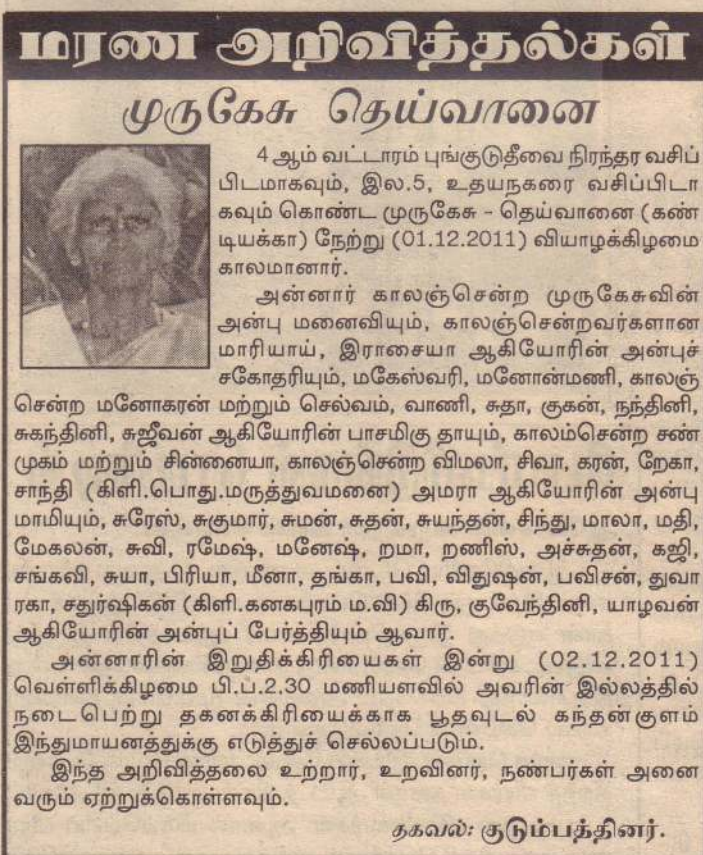 மரண அறிவித்தல்கள்
முருகேசு தெய்வானை
4 ஆம் வட்டாரம் புங்குடுதீவை நிரந்தர வசிப்
பிடமாகவும், இல.5, உதயநகரை வசிப்பிடா
கவும் கொண்ட முருகேசு - தெய்வானை (கண்
டியக்கா) நேற்று (01.12.2011) வியாழக்கிழமை
காலமானார்.
அன்னார் காலஞ்சென்ற முருகேசுவின்
அன்பு மனைவியும், காலஞ்சென்றவர்களான
மாரியாய், இராசையா ஆகியோரின் அன்புச்
சகோதரியும், மகேஸ்வரி, மனோன்மணி, காலஞ்
சென்ற மனோகரன் மற்றும் செல்வம், வாணி, சுதா, குகன், நந்தினி,
சுகந்தினி, சுஜீவன் ஆகியோரின் பாசமிகு தாயும், காலம்சென்ற சண்
முகம் மற்றும் சின்னையா, காலஞ்சென்ற விமலா, சிவா, கரன், றேகா,
சாந்தி (கிளி.பொது.மருத்துவமனை) அமரா ஆகியோரின் அன்பு
மாமியும், சுரேஸ், சுகுமார், சுமன், சுதன், சுயந்தன், சிந்து, மாலா, மதி,
மேகலன், சுவி, ரமேஷ், மனேஷ், றமா, றணிஸ், அச்சுதன், கஜி,
சங்கவி, சுயா, பிரியா, மீனா, தங்கா, பவி, விதுஷன், பவிசன், துவா
ரகா, சதுர்ஷிகன் (கிளி.கனகபுரம் ம.வி) கிரு, குவேந்தினி, யாழவன்
ஆகியோரின் அன்புப் பேர்த்தியும் ஆவார்.
அன்னாரின் இறுதிக்கிரியைகள் இன்று (02.12.2011)
வெள்ளிக்கிழமை பி.ப.2.30 மணியளவில் அவரின் இல்லத்தில்
நடைபெற்று தகனக்கிரியைக்காக பூதவுடல் கந்தன்குளம்
இந்துமாயனத்துக்கு எடுத்துச் செல்லப்படும்.
இந்த அறிவித்தலை உற்றார், உறவினர், நண்பர்கள் அனை
வரும் ஏற்றுக்கொள்ளவும்.
தகவல்: குடும்பத்தினர்.